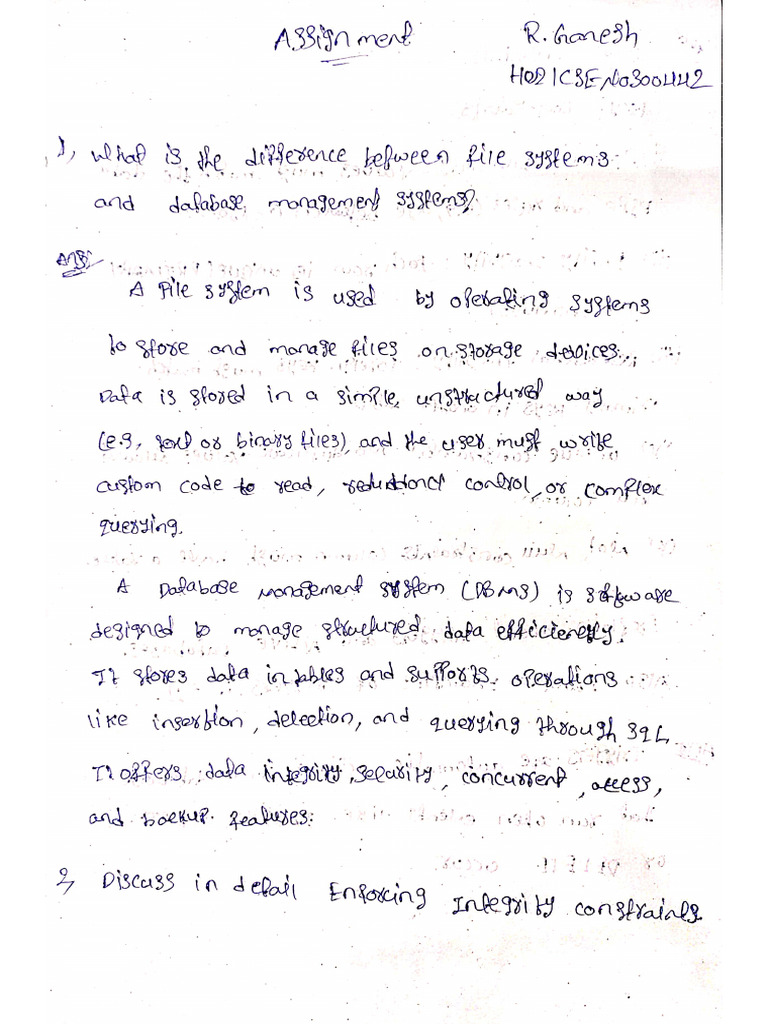 Assignment
R. Ganesh
1, What is the difference between file systems
and database management systems?
Ans:
A File system is used by operating systems
to store and manage files on storage devices.
Data is stored in a simple, unstructured way
(e.g, text or binary files) and the user must write
custom code to read, control, or complex
querying.
A Database Management system (DBMS) is software
designed to manage structured data efficiently.
It stores data in tables and supports operations
like insertion, delection, and querying through SQL
It offers data integrity, security, concurrent, access,
and backup features.
2, Discuss in detail Enforcing Integrity constraints